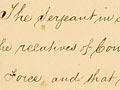 The Serjeant in
the relatives of Con
Force, and that